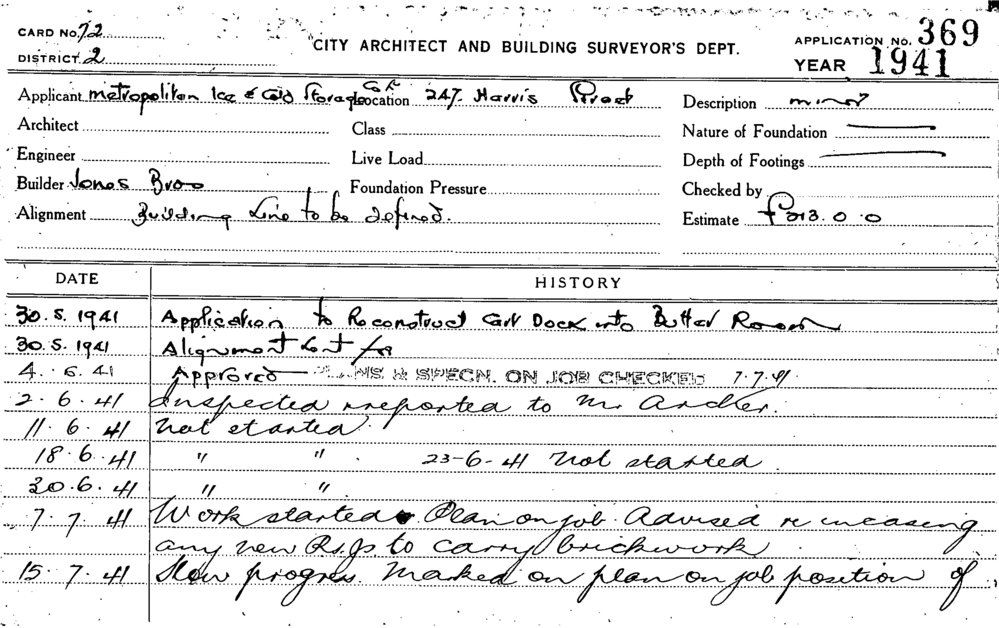 CARD No. 72
DISTRICT 2
CITY ARCHITECT AND BUILDING SURVEYOR'S DEPT.
APPLICATION No. 369
YEAR 1941
Applicant Metropolitan Ice & Cold Storage Co Location 247. Harris Street Description minor
Architect Class Nature of Foundation
Engineer Live Load Depth of Footings
Builder Jones Bros Foundation Pressure Checked by
Alignment Building Line to be defined. Estimate £213.0.0
DATE HISTORY
30.5.1941 Application to Reconstruct Cart Dock into Butter Room
30.5.1941 Alignment sent for
4.6.41 Approved PLANS & SPECN. ON JOB CHECKED 7.7.41
2.6.41 Inspected & reported to Mr Archer.
11.6.41 Not started.
18.6.41 " " . 23-6-41 Not started.
30.6.41 " "
7.7.41 Work started. Plan on job. Advised re incasing
any new R.S.Js to carry brickwork.
15.7.41 Slow progress. Marked on plan on job position of